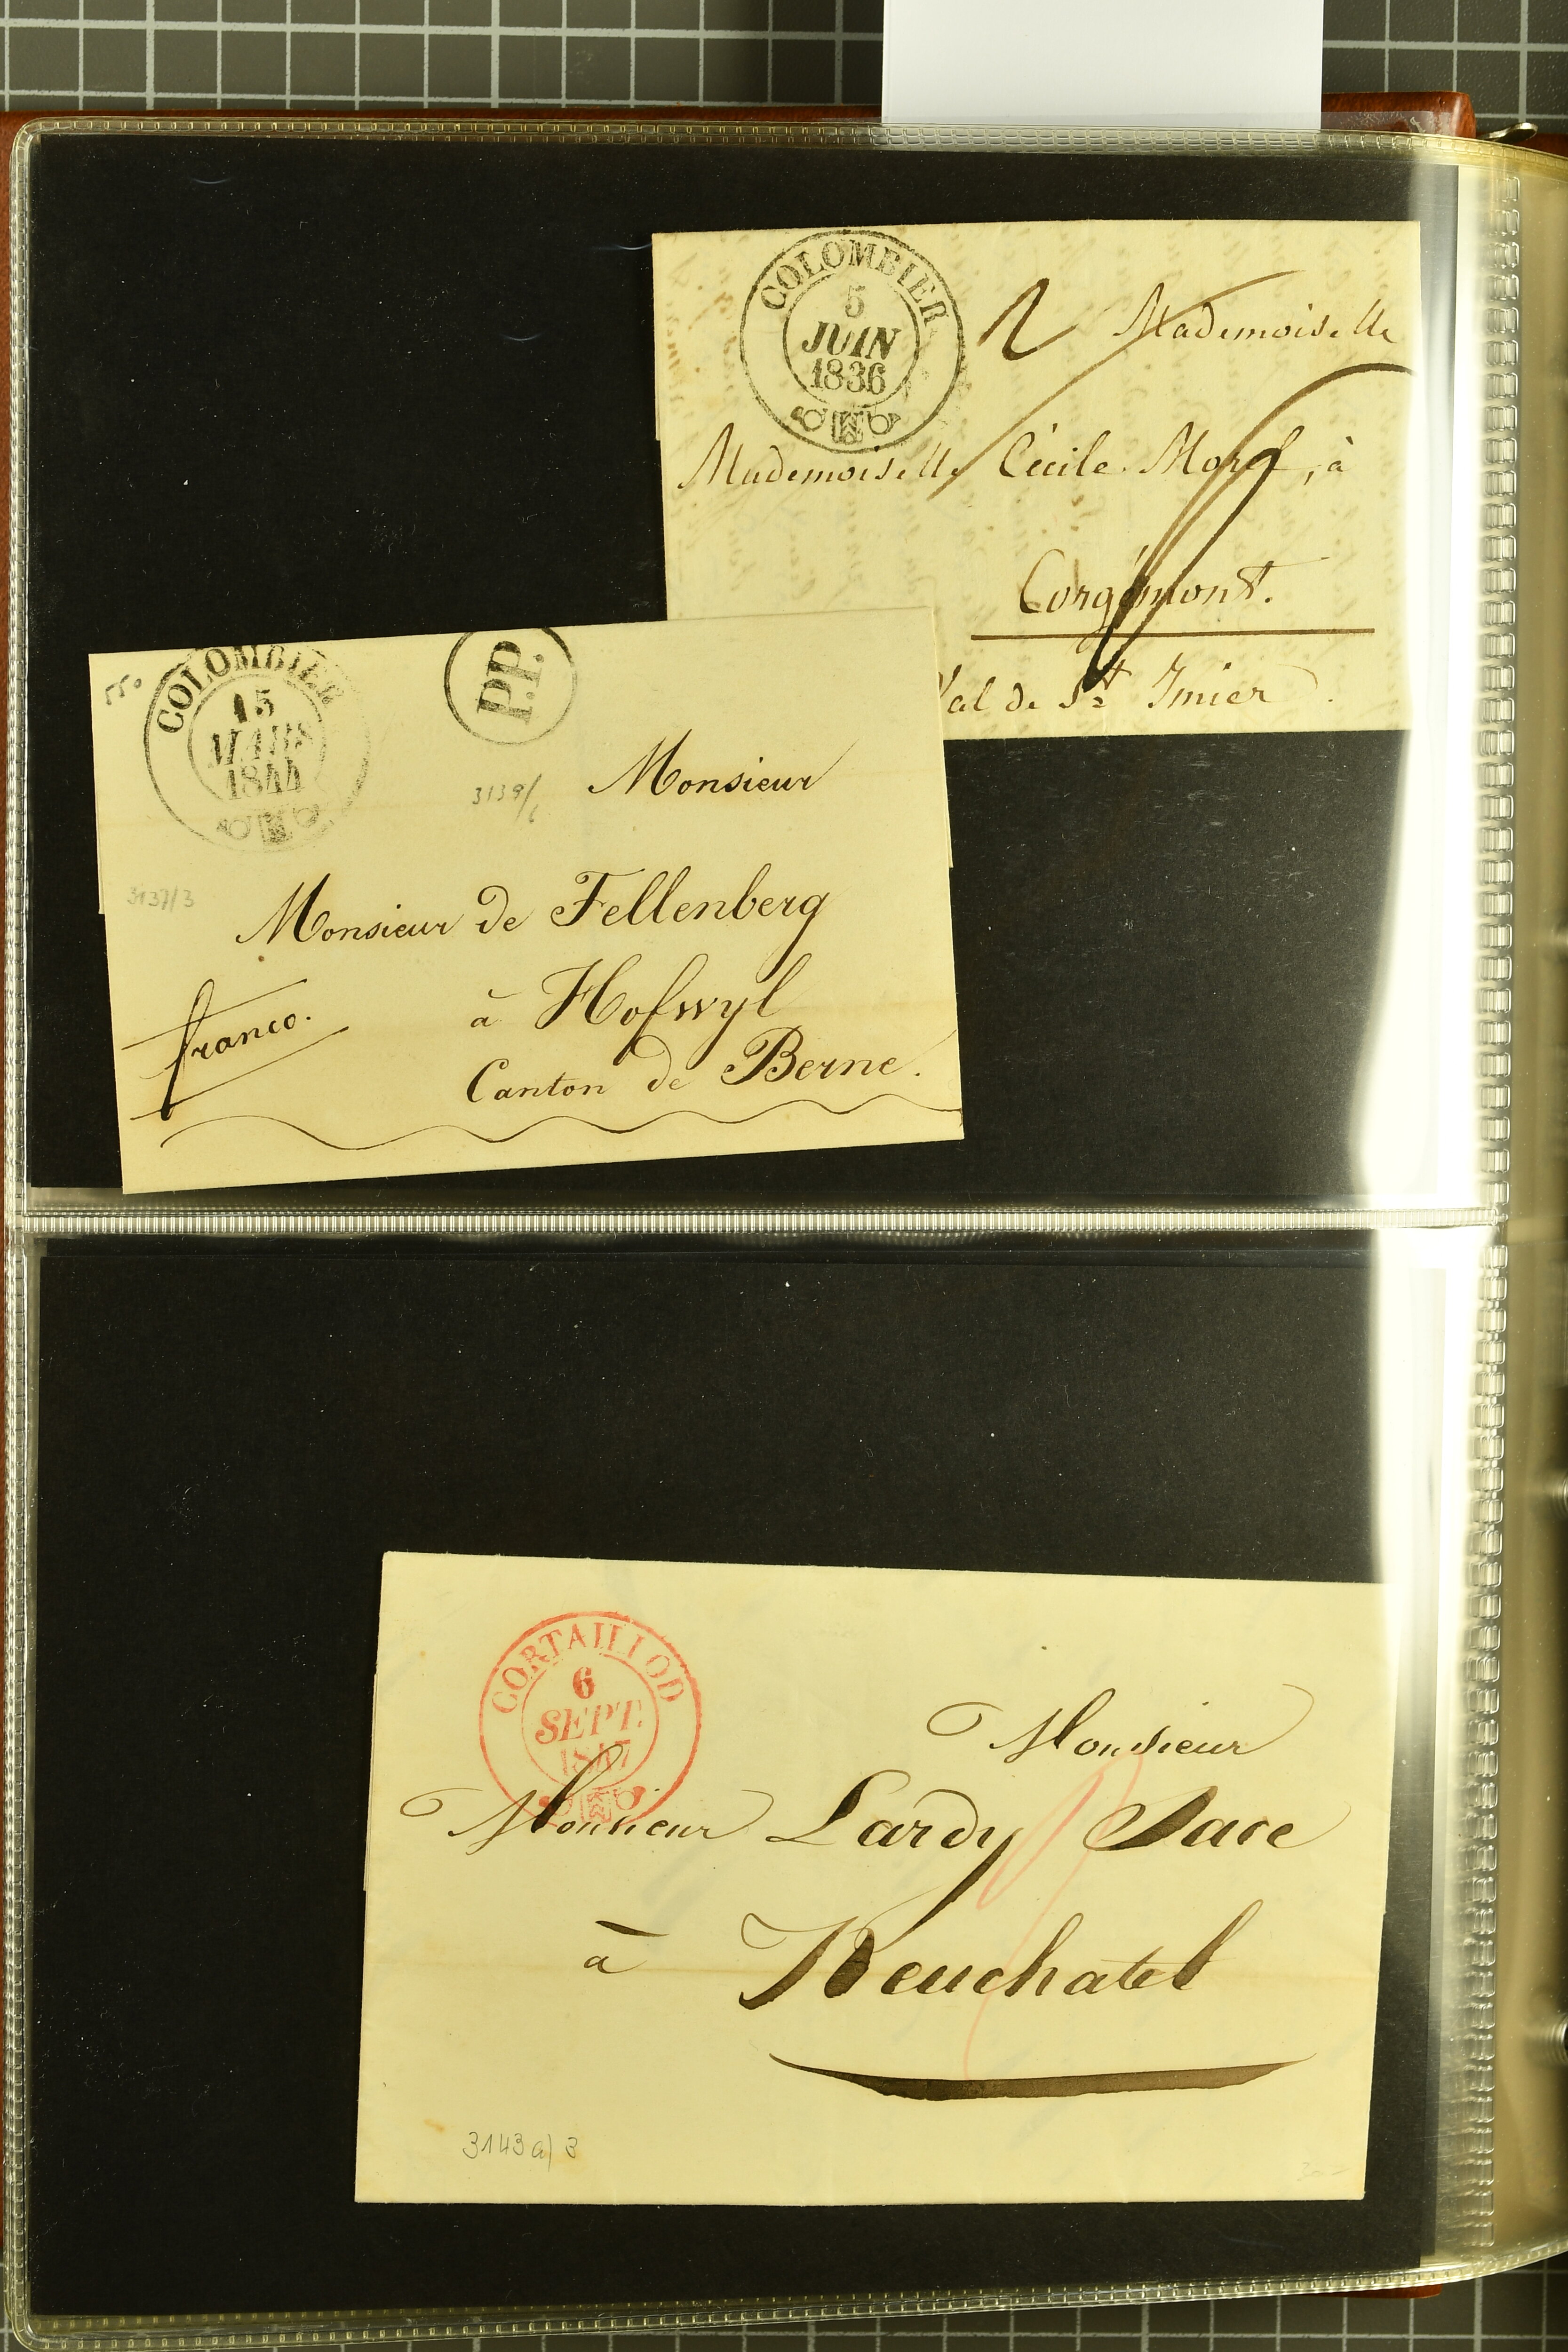 COLOMBIER
5
JUIN
1836
2
Mademoiselle
Mademoiselle Cécile Morel, à
Corgémont.
Val de St Imier
COLOMBIER
15
MARS
1844
P.P.
3139/6
Monsieur
3137/3
Monsieur de Fellenberg
à Hofwyl
franco.
Canton de Berne.
CORTAILLOD
6
SEPT.
1847
Monsieur
Monsieur Lardy
à Neuchatel
3143a/3